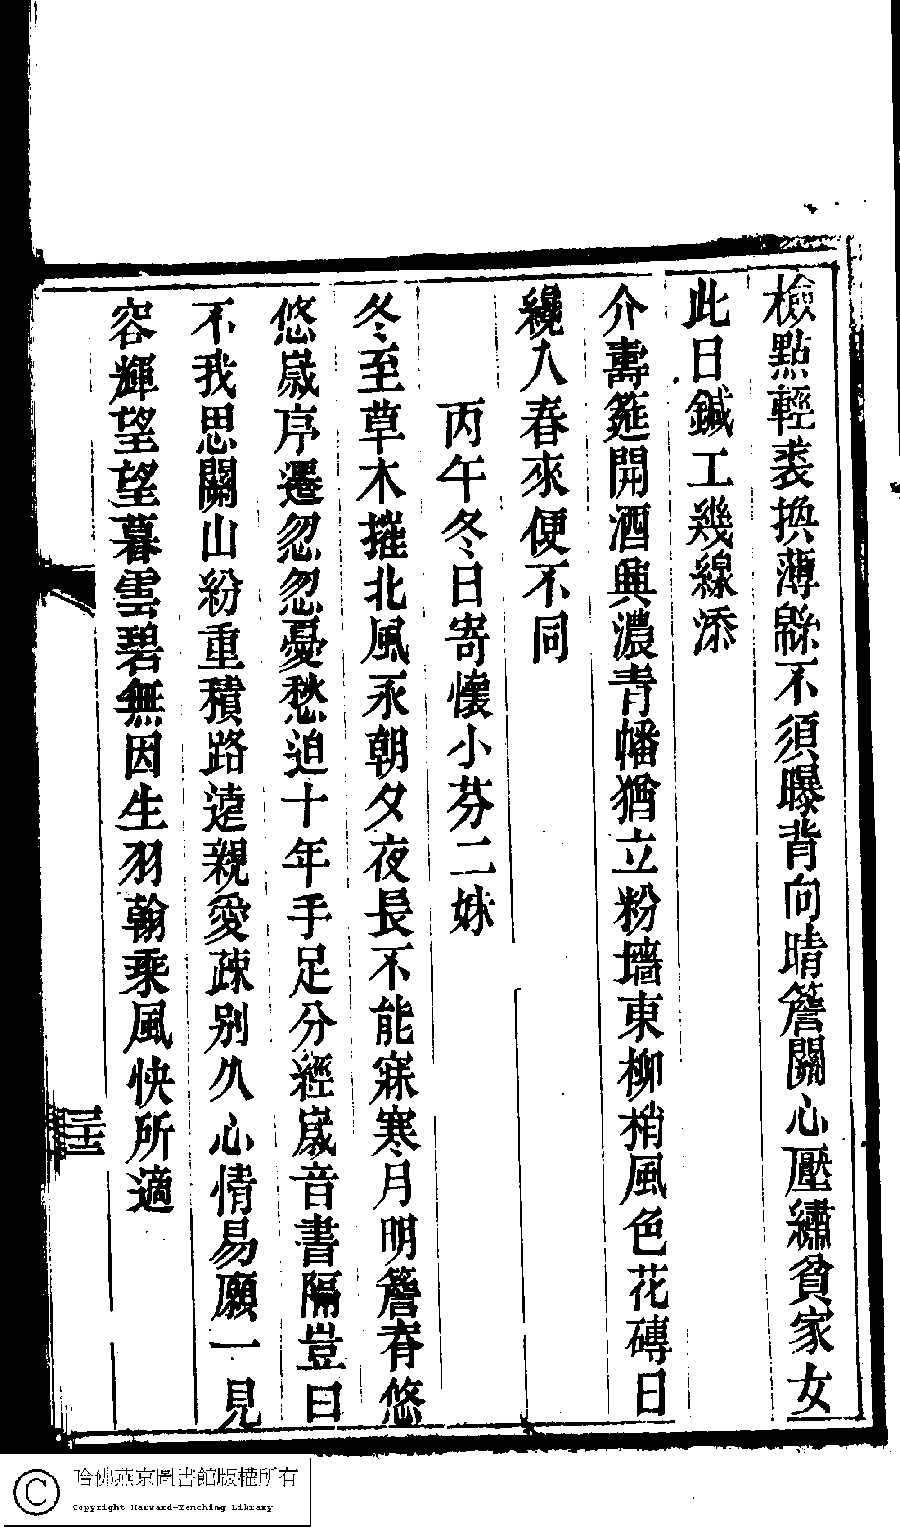 檢點輕裘換薄緜不須曝背向晴簷關心壓繡貧家女
此日鍼工幾線添
介壽筵開酒興濃青幡猶立粉墻東柳梢風色花磚日
纔入春來便不同
丙午冬日寄懷小芬二妹
冬至草木摧北風永朝夕夜長不能寐寒月明簷脊悠
悠嵗序遷忽忽憂愁迫十年手足分經嵗音書隔豈曰
不我思關山紛重積路遠親愛疎别久心情易願一見
容輝望望暮雲碧無因生羽翰乘風快所適
三十五
哈佛燕京圖書館版權所有
Copyright Harvard-Yenching Library